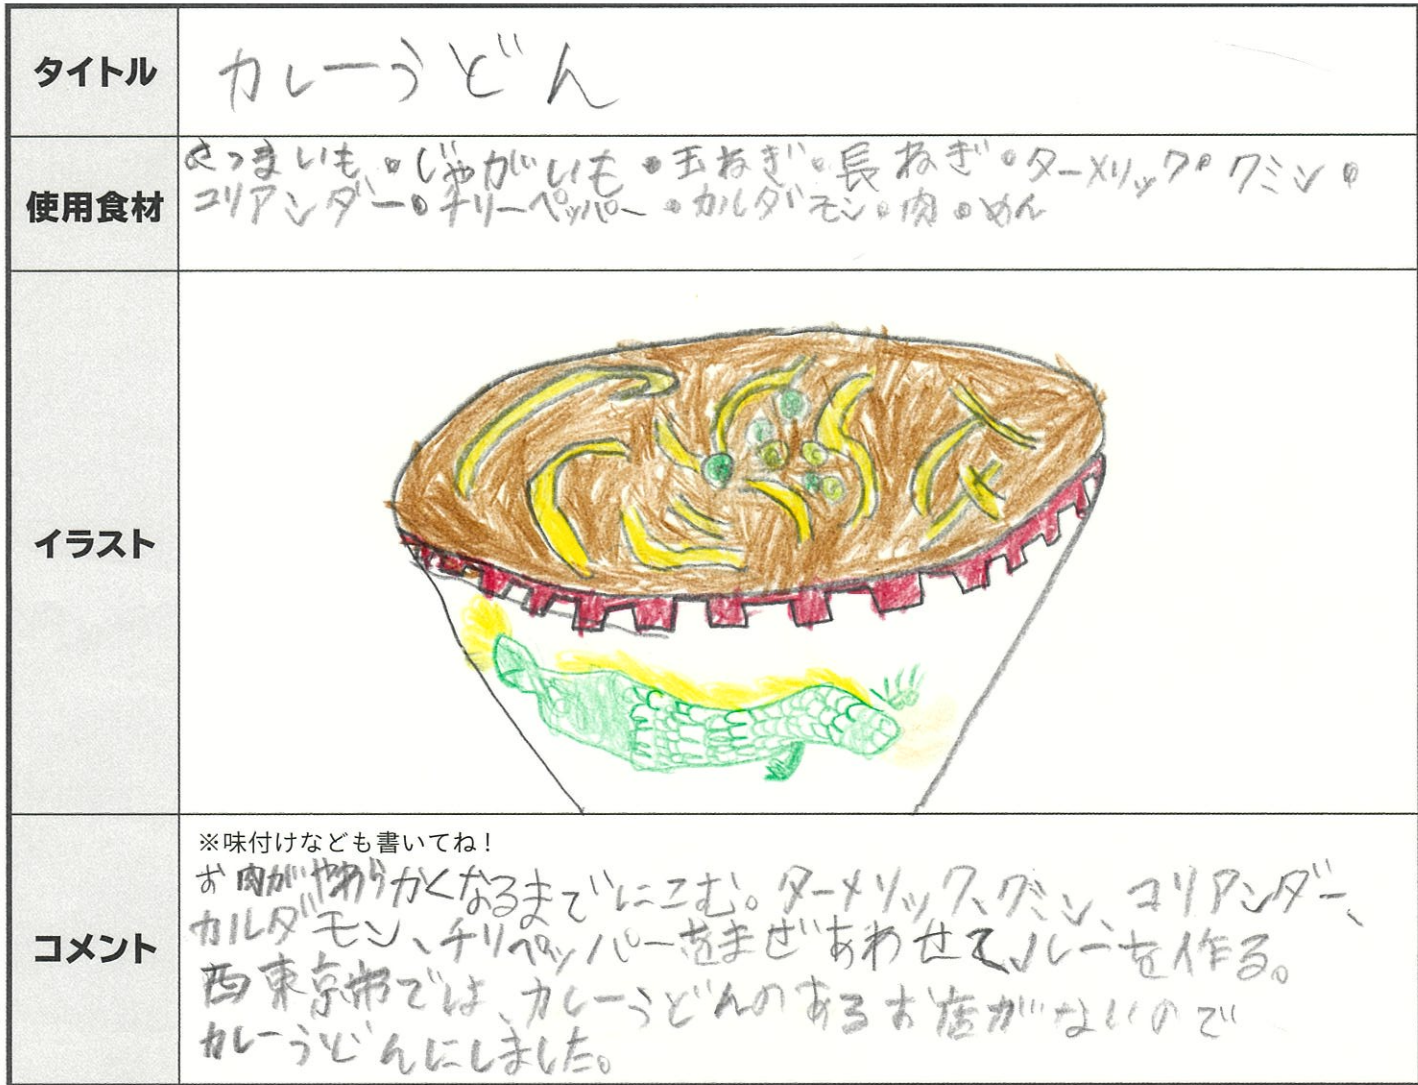 タイトル
カレーうどん
使用食材
さつまいも・じゃがいも・玉ねぎ・長ねぎ・ターメリック・クミン・
コリアンダー・チリーペッパー・カルダモン・肉・めん
イラスト
コメント
※味付けなども書いてね!
お肉がやわらかくなるまでにこむ。ターメリック、クミン、コリアンダー、
カルダモン、チリペッパーをまぜあわせてルーを作る。
西東京市では、カレーうどんのあるお店がないので
カレーうどんにしました。